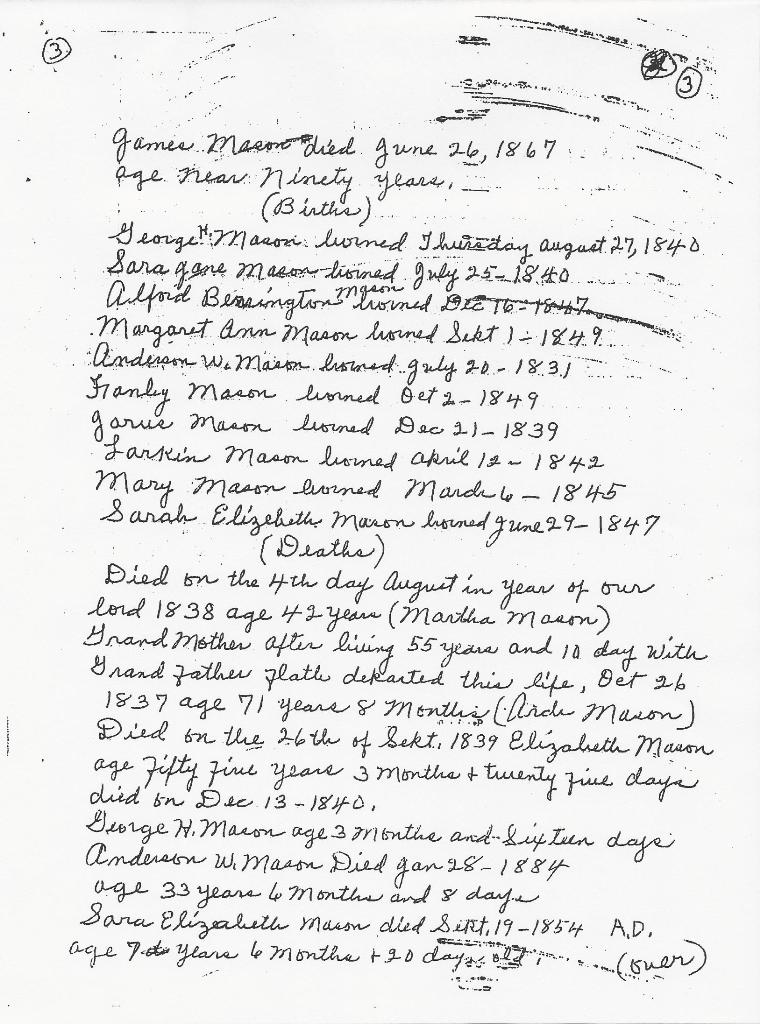 3
3
James Mason died June 26, 1867
age near Ninety years.
(Births)
George H. Mason borned Thursday august 27, 1840
Sara Jane Mason borned July 25-1840
Alford Bensington Mason borned Dec 16-1847
Margaret Ann Mason borned Sept 1-1849
Anderson W. Mason borned July 20-1831
Franley Mason borned Oct 2-1849
Jarus Mason borned Dec 21-1839
Larkin Mason borned april 12-1842
Mary Mason borned March 6-1845
Sarah Elizebeth Mason borned June 29-1847
(Deaths)
Died on the 4th day August in year of our
lord 1838 age 42 years (Martha Mason)
Grand Mother after living 55 years and 10 day with
Grand Father departed this life, Oct 26
1837 age 71 years 8 Months (Arch Mason)
Died on the 26th of Sept. 1839 Elizabeth Mason
age Fifty Five years 3 Months + twenty Five days
died on Dec 13-1840.
George H. Mason age 3 Months and Sixteen days
Anderson W. Mason Died Jan 28-1884
age 33 years 6 Months and 8 days
Sara Elizabeth Mason died Sept. 19-1854 A.D.
age 7 years 6 Months + 20 days old. (over)